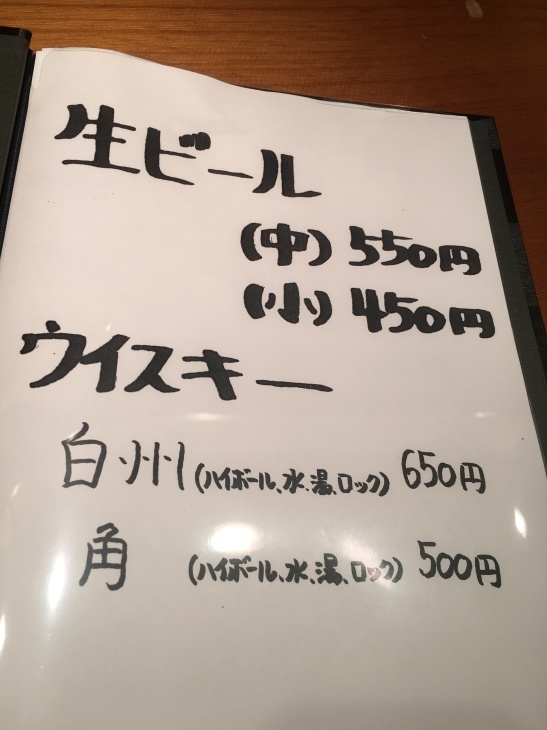 生ビール
(中) 550円
(小) 450円
ウイスキー
白州 (ハイボール、水、湯、ロック) 650円
角 (ハイボール、水、湯、ロック) 500円